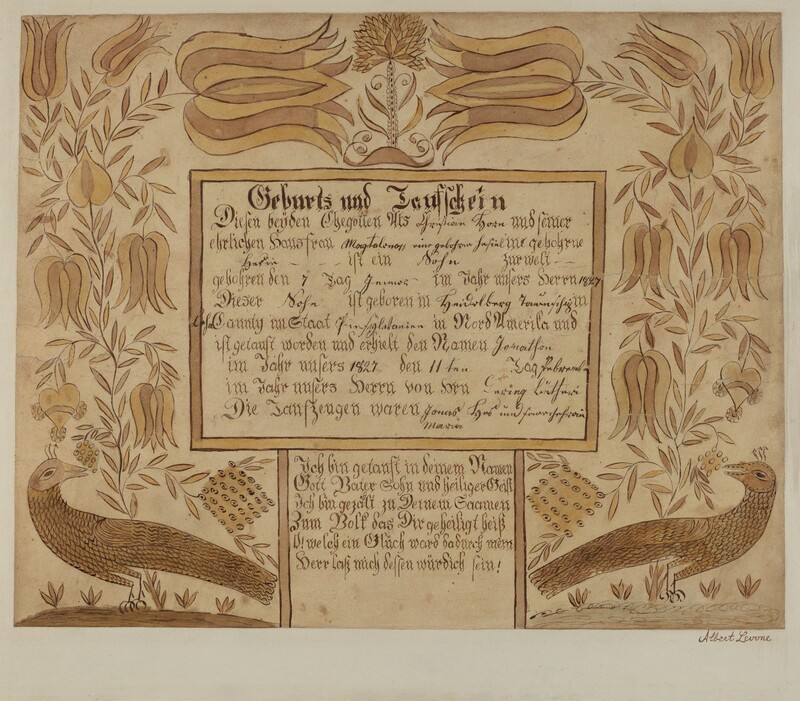 Geburts und Taufschein
Diesen beyden Ehegatten Als Christian Horn und seiner
ehrlichen Hausfrau Magtalena eine gebohrne
ist ein Sohn zur welt
gebohren den 7 Tag Jenner im Jahr unsers Herrn 1827
Dieser Sohn ist geboren in Heidelberg Taunschip in
Caunty im Staat Pinsylvanien in Nord Amerika und
ist getauft worden und erhielt den Namen Jonathan
im Jahr unsers 1827 den 11 ten Tag Febrewar
im Jahr unsers Herrn von Hrn
Die Taufzeugen waren Jonas Has und
Maria
Ich bin getauft in deinem Namen
Gott Vater Sohn und heiliger Geist
Ich bin gezält zu Deinem Saamen
Zum Volk das Dir geheiligt heiß
O! welch ein Glück ward dadurch mein
Herr laß mich dessen würdich sein!
Albert Levone